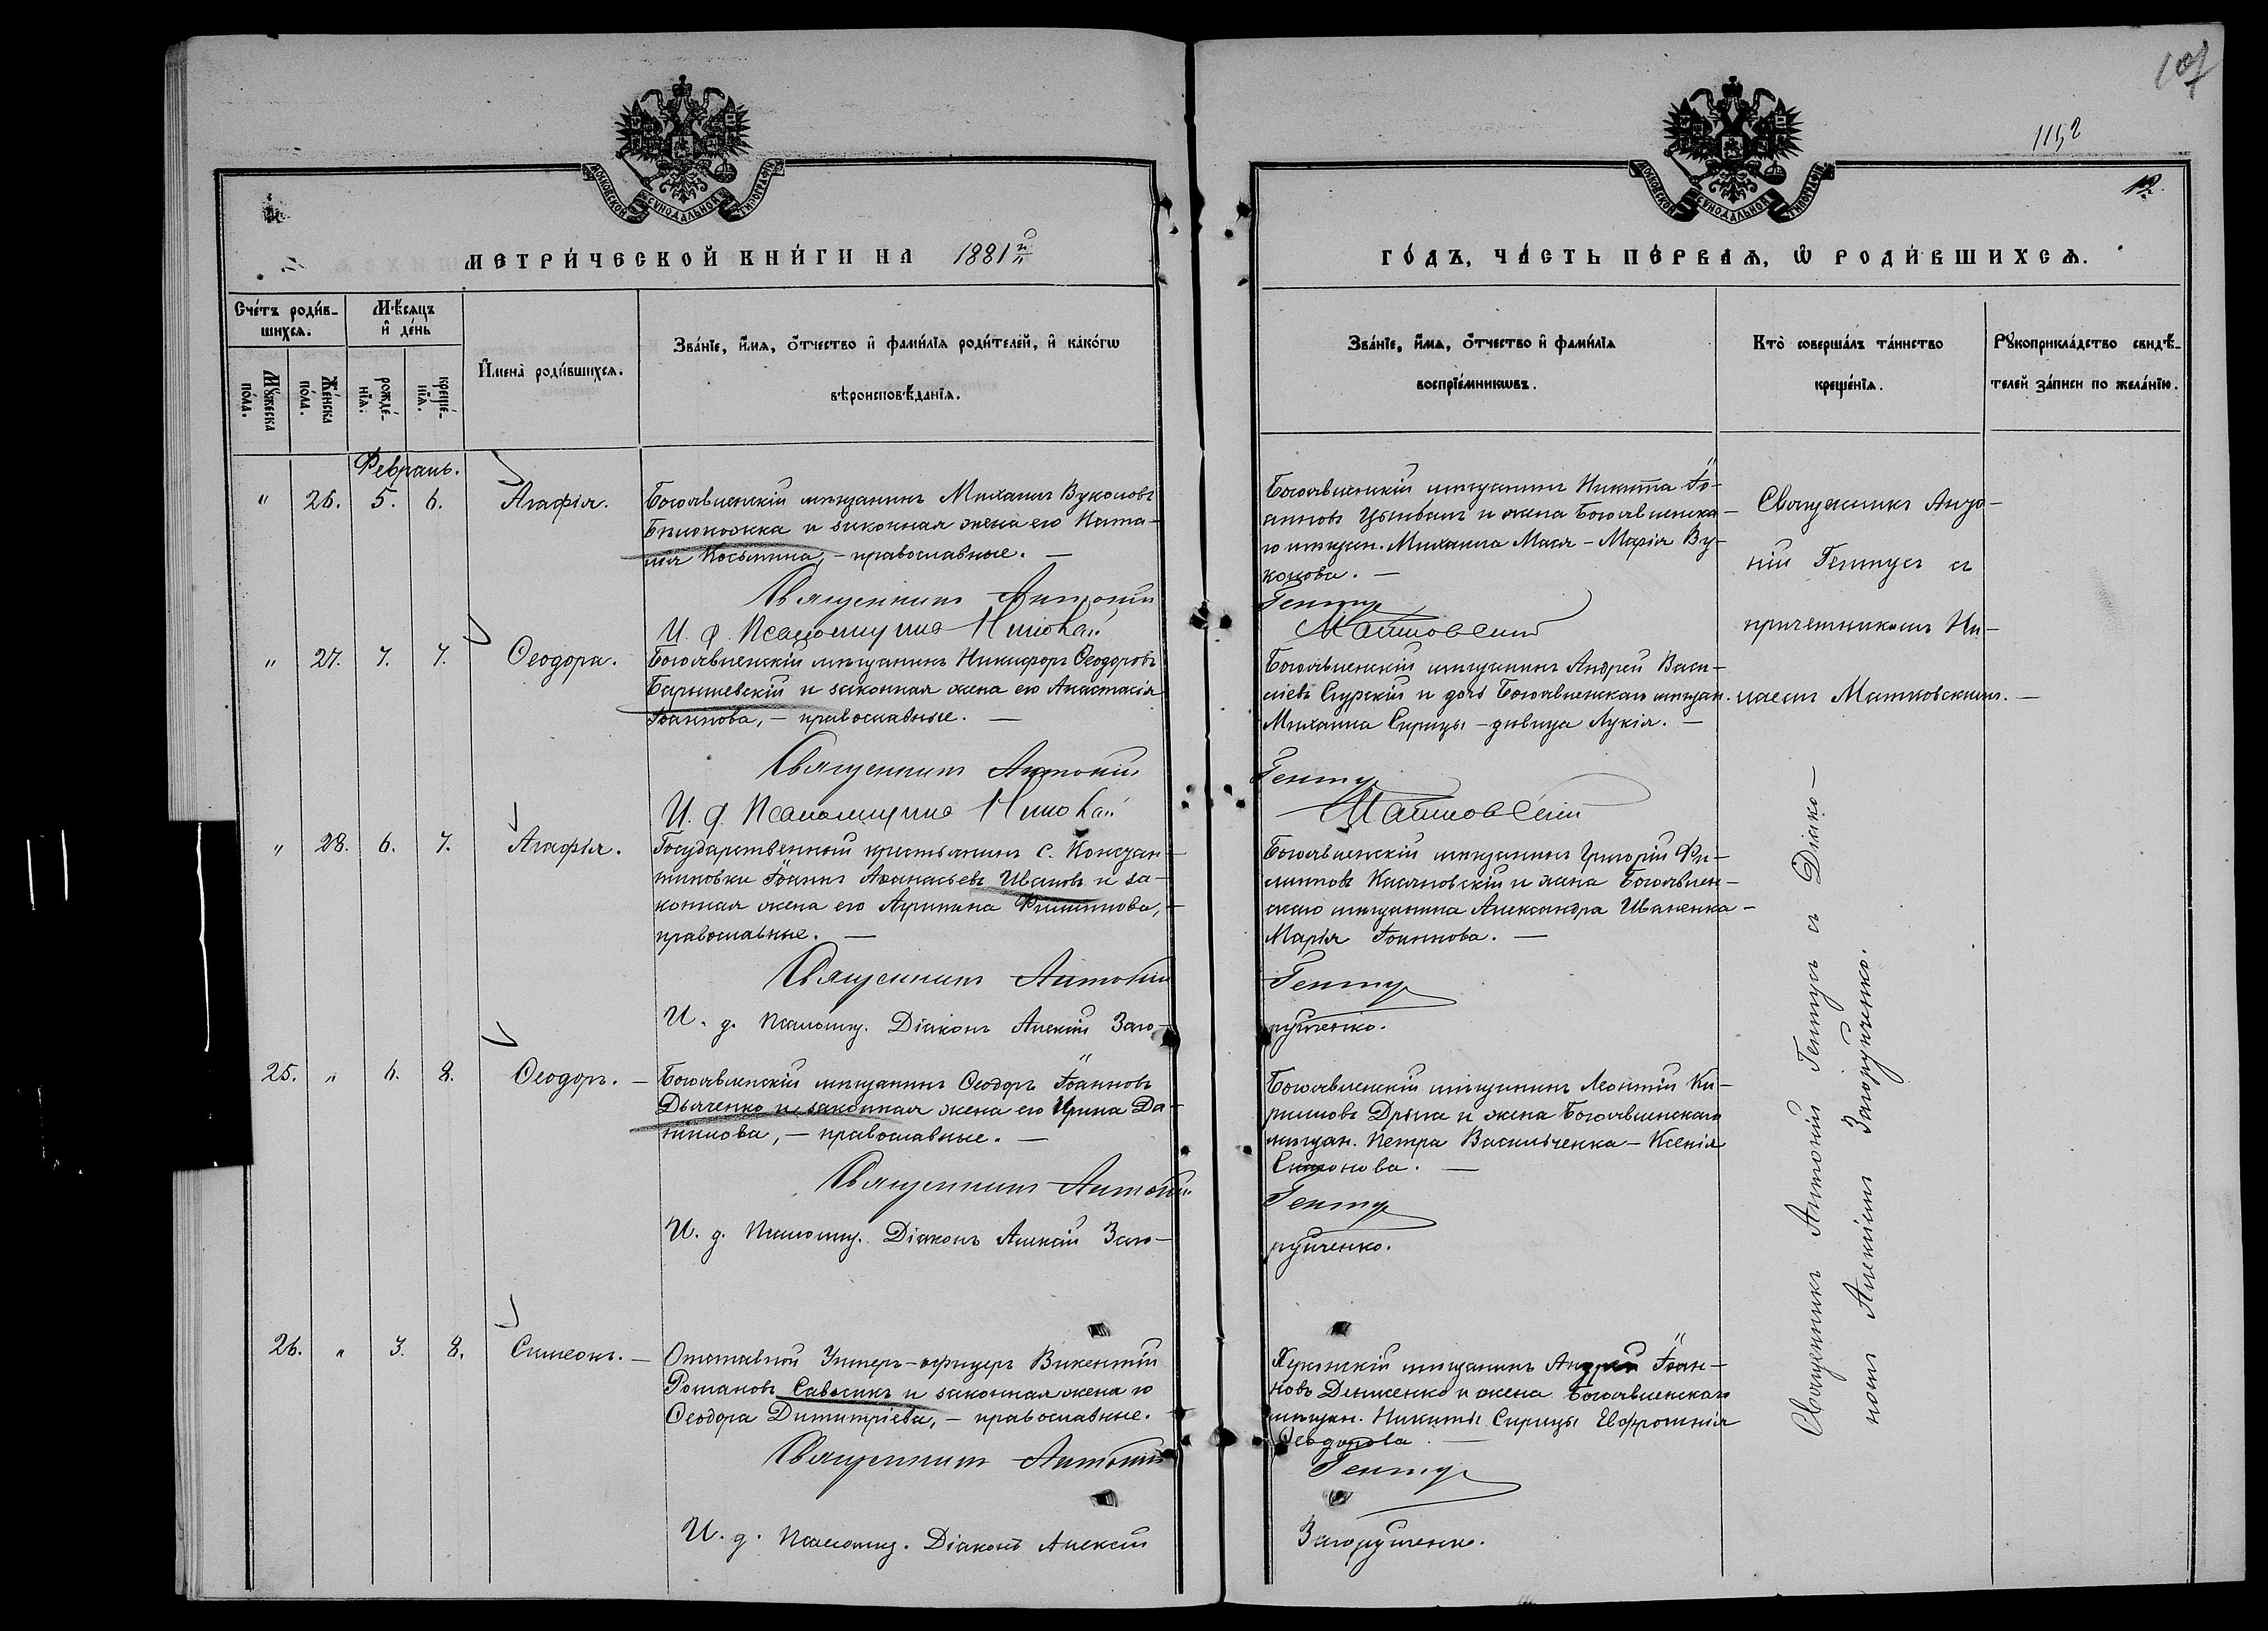 107
1152
12.
МОСКОВСКОЙ СУНОДАЛЬНОЙ ТИПОГРАФІИ
МОСКОВСКОЙ СУНОДАЛЬНОЙ ТИПОГРАФІИ
МЕТРИ́ЧЕСКОЙ КНИ́ГИ НА 1881й
ГО́ДЪ, ЧА́СТЬ ПЕ́РВАѦ, Ѽ РОДИ́ВШИХСѦ.
Сче́тъ роди́в-
шихсѧ.
Мꙋжеска
по́ла.
Же́нска
по́ла.
Мѣ́сѧцъ
и҆ де́нь
рожде́-
нїѧ.
креще́-
нїѧ.
И҆мена̀ роди́вшихсѧ.
Зва́нїе, и҆́мѧ, ѻ҆́тчество и҆ фами́лїѧ роди́телей, и҆ како́гѡ
вѣроисповѣ́данїѧ.
Зва́нїе, и҆́мѧ, ѻ҆́тчество и҆ фами́лїѧ
воспрїе́мникѡвъ.
Кто̀ соверша́лъ та́инство
креще́нїѧ.
Рꙋкоприкла́дство свидѣ́-
телей за́писи по жела́нїю.
Февраль.
" 26. 5. 6. Агафія.
Богоявленскій мѣщанинъ Михаилъ Вуколовъ
Бѣлоножка и законная жена его Ната-
лія Косьмина, – православные. –
Священникъ Антоній
И. д. Псаломщика Николай
Богоявленскій мѣщанинъ Никита Іо-
анновъ Цымбалъ и жена Богоявленска-
го мѣщан. Михаила Мася – Марія Ву-
колова. –
Гентуз
Матковскій
Священникъ Анто-
ній Гентусъ съ
причетникомъ Ни-
колаемъ Матковскимъ. –
" 27. 7. 7. Ѳеодора.
Богоявленскій мѣщанинъ Никифоръ Ѳеодоровъ
Барышевскій и законная жена его Анастасія
Іоаннова, – православные. –
Священникъ Антоній
И. д. Псаломщика Николай
Богоявленскій мѣщанинъ Андрей Васи-
ліевъ Скурскій и дочь Богоявленскаго мѣщан.
Михаила Скрицы – дѣвица Лукія. –
Гентуз
Матковскій
" 28. 6. 7. Агафія.
Государственный крестьянинъ с. Констан-
тиновки Іоаннъ Аѳанасьевъ Ивановъ и за-
конная жена его Агрипина Филиппова, –
православные. –
Священникъ Антоній
И. д. Псаломщ. Діаконъ Алексій Заго-
Богоявленскій мѣщанинъ Григорій Фи-
липповъ Касяновскій и жена Богоявлен-
скаго мѣщанина Александра Иваненка –
Марія Іоаннова. –
Гентуз
руйченко.
Священникъ Антоній Гентусъ съ Діако-
номъ Алексіемъ Загоруйченко.
25. " 6. 8. Ѳеодоръ. –
Богоявленскій мѣщанинъ Ѳеодоръ Іоанновъ
Дьяченко и законная жена его Ирина Да-
ніилова, – православные. –
Священникъ Антоній
И. д. Псаломщ. Діаконъ Алексій Заго-
Богоявленскій мѣщанинъ Леонтій Ки-
рилловъ Дрыга и жена Богоявленскаго
мѣщан. Петра Васильченка – Ксенія
Симонова. –
Гентуз
руйченко.
26. " 3. 8. Симеонъ. –
Отставной Унтеръ-офицеръ Викентій
Романовъ Савосикъ и законная жена его
Ѳеодора Димитріева, – православные.
Священникъ Антоній
И. д. Псаломщ. Діаконъ Алексій
мѣщанинъ Андрей Іоан-
новъ Денисенко и жена Богоявленскаго
мѣщан. Никиты Скрицы Евфросинія
Ѳеодорова. –
Гентуз
Загоруйченко.